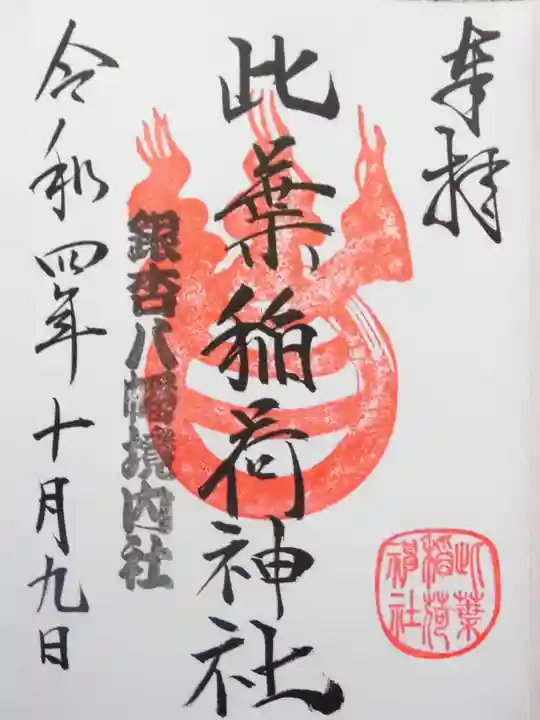 奉拝
此葉稲荷神社
銀杏八幡境内社
令和四年十月九日
此葉
稲荷
神社